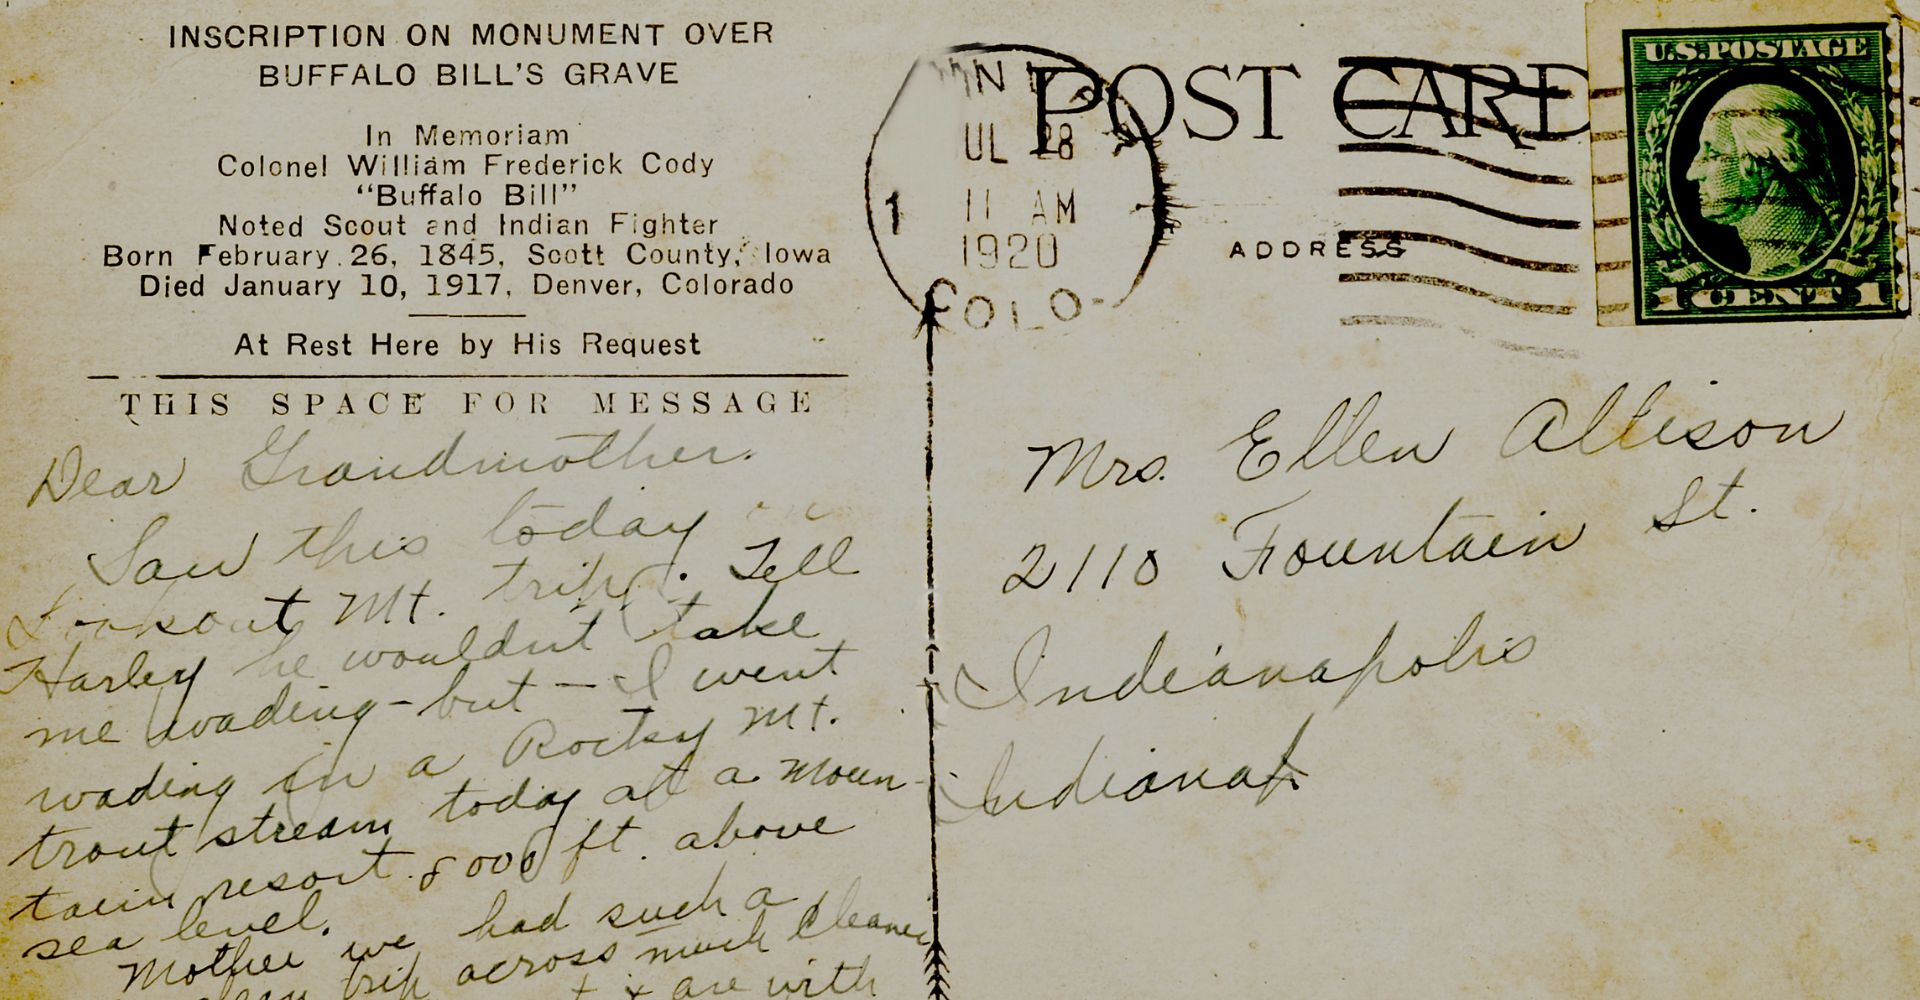 INSCRIPTION ON MONUMENT OVER
BUFFALO BILL'S GRAVE
In Memoriam
Colonel William Frederick Cody
"Buffalo Bill"
Noted Scout and Indian Fighter
Born February 26, 1845, Scott County, Iowa
Died January 10, 1917, Denver, Colorado
At Rest Here by His Request
THIS SPACE FOR MESSAGE
Dear Grandmother.
Saw this today
Lookout Mt. trip. Tell
Harley he wouldn't take
me wading - but - I went
wading in a Rocky Mt.
trout stream today at a moun-
tain resort 8000 ft. above
sea level.
Mother we had such a
clean trip across much cleaner
are with
POST CARD
UL 28
11 AM
1920
COLO-
1
ADDRESS
U.S. POSTAGE
1 CENT 1
Mrs. Ellen Allison
2110 Fountain St.
Indianapolis
Indiana